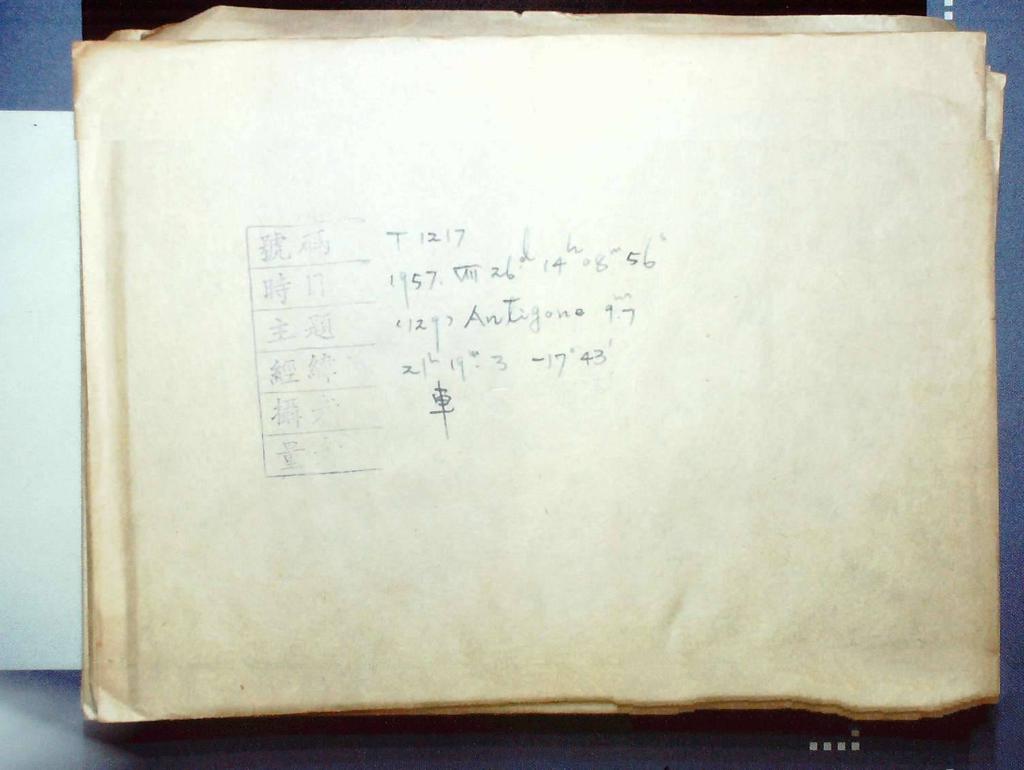 號碼 T 1217
時日 1957. VIII 26ᵈ 14ʰ 08ᵐ 56ˢ
主題 (129) Antigone 9.ᵐ7
經緯 21ʰ 19ᵐ.3 -17°43'
攝者 車
量者